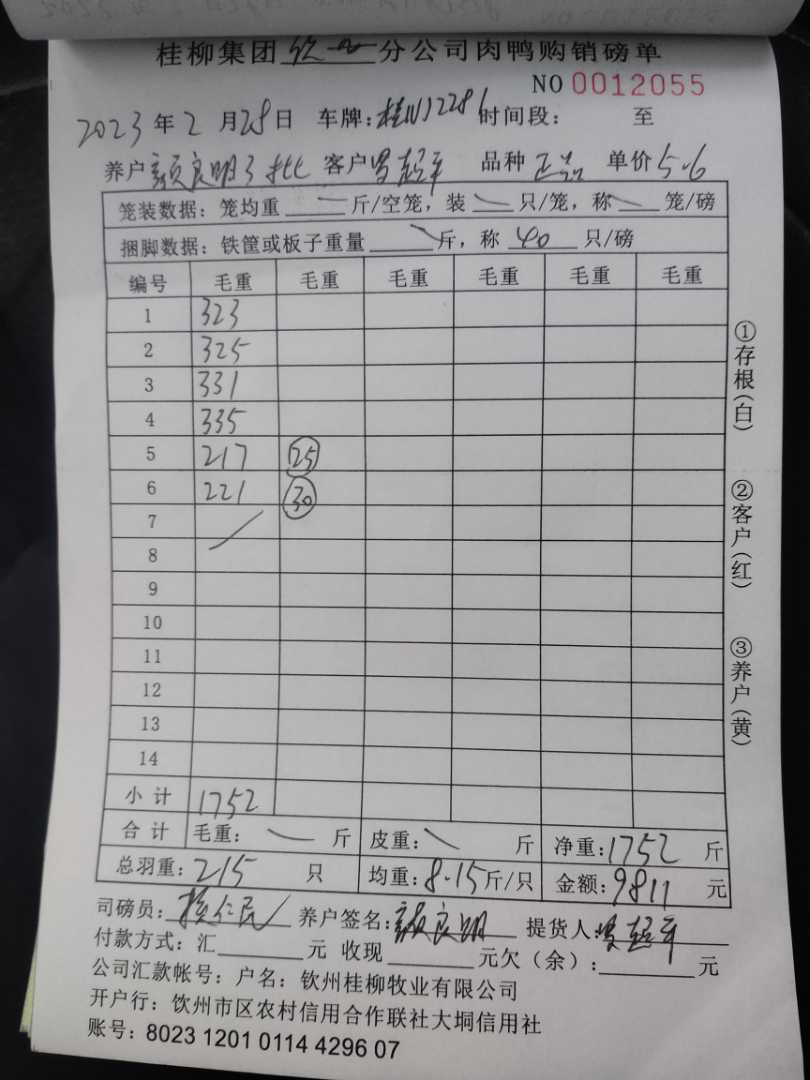 桂柳集团 分公司肉鸭购销磅单
NO 0012055
2023年2月28日 车牌:桂N12286 时间段: 至
养户 颜良明3批 客户 品种 正品 单价 5.6
笼装数据:笼均重 — 斤/空笼,装 — 只/笼,称 — 笼/磅
捆脚数据:铁筐或板子重量 — 斤,称 40 只/磅
编号 毛重 毛重 毛重 毛重 毛重 毛重
1 323
2 325
3 331
4 335
5 217 25
6 221 30
7
8
9
10
11
12
13
14
小计 1752
合计 毛重: — 斤 皮重: — 斤 净重:1752 斤
总羽重:215 只 均重:8.15斤/只 金额:9811 元
司磅员: 养户签名:颜良明 提货人:
付款方式:汇 元 收现 元欠(余): 元
公司汇款帐号:户名:钦州桂柳牧业有限公司
开户行:饮州市区农村信用合作联社大垌信用社
账号:8023 1201 0114 4296 07
①存根(白)
②客户(红)
③养户(黄)